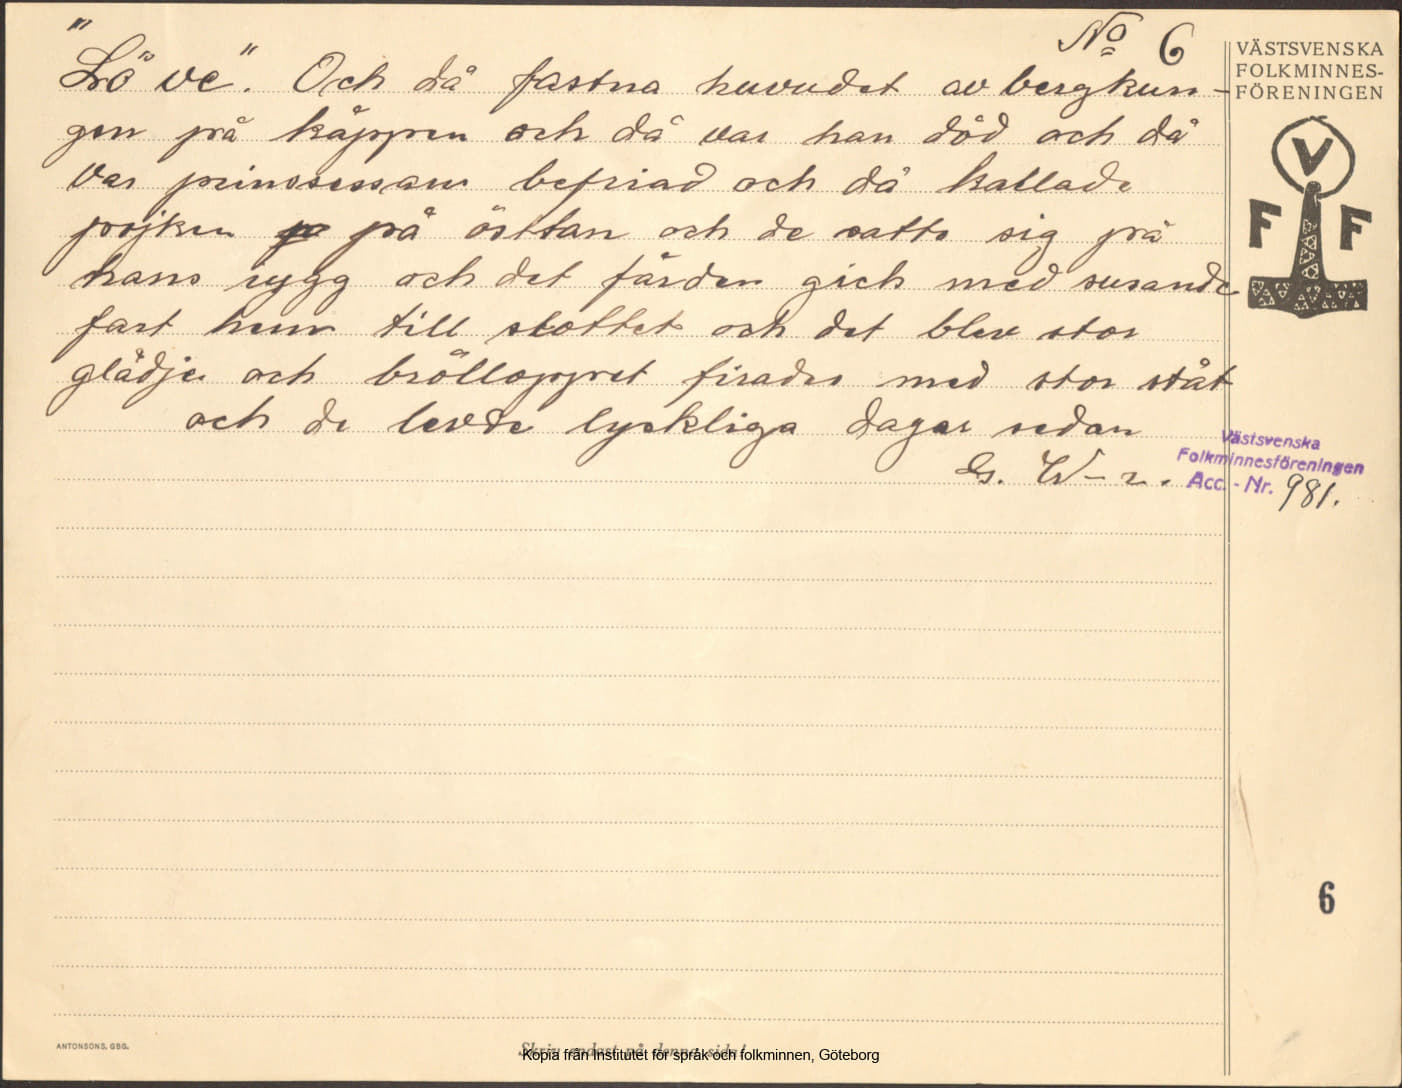 No 6
"Lö ve". Och då fastna huvudet av bergkun-
gen på käppen och då var han död och då
var prinssessam befriad och då kallade
pojken på östtan och de satte sig på
hans rygg och det färden gick med susande
fart hem till slottet och det blev stor
glädje och brölloppet firades med stor ståt
och de levde lyckliga dagar sedan
G. W-r.
VÄSTSVENSKA
FOLKMINNES-
FÖRENINGEN
V
F F
Västsvenska
Folkminnesföreningen
Acc. - Nr. 981.
6
ANTONSONS, GBG.
Skriv endast på denna sida!
Kopia från Institutet för språk och folkminnen, Göteborg